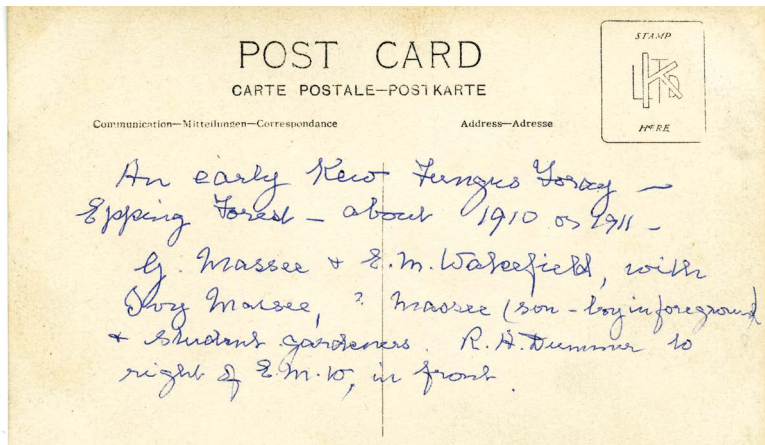 POST CARD
CARTE POSTALE—POSTKARTE
Communication—Mitteilungen—Correspondance
Address—Adresse
STAMP
HERE
An early Kew Fungus Foray —
Epping Forest — about 1910 or 1911 —
G. Massee & E.M. Wakefield, with
Ivy Massee, ? Massee (son - boy in foreground
& student gardeners. R.A. Dummer to
right of E.M.W, in front.